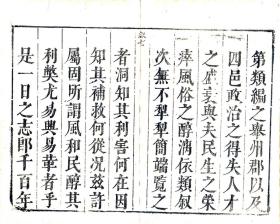 第類編之舉州郡以及
四邑政治之得失人才
之盛衰與夫民生之榮
瘁風俗之醇漓依類叙
次無不犁犁簡端覽之
者洞知其利害何在因
知其補救何從况茲許
屬固所謂風和民醇其
利獘尤易興易革者乎
是一日之志卽千百年